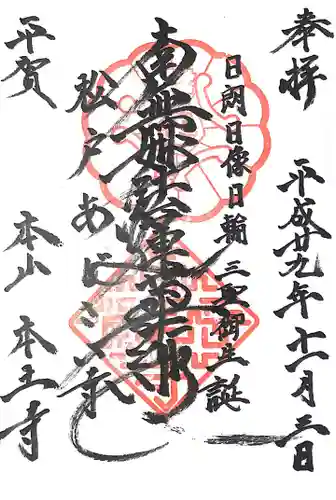 奉拝
平成廿九年十一月三日
日朗日像日輪三聖御生誕
南無妙法蓮華経
松戸あじさい寺
平賀 本山 本土寺